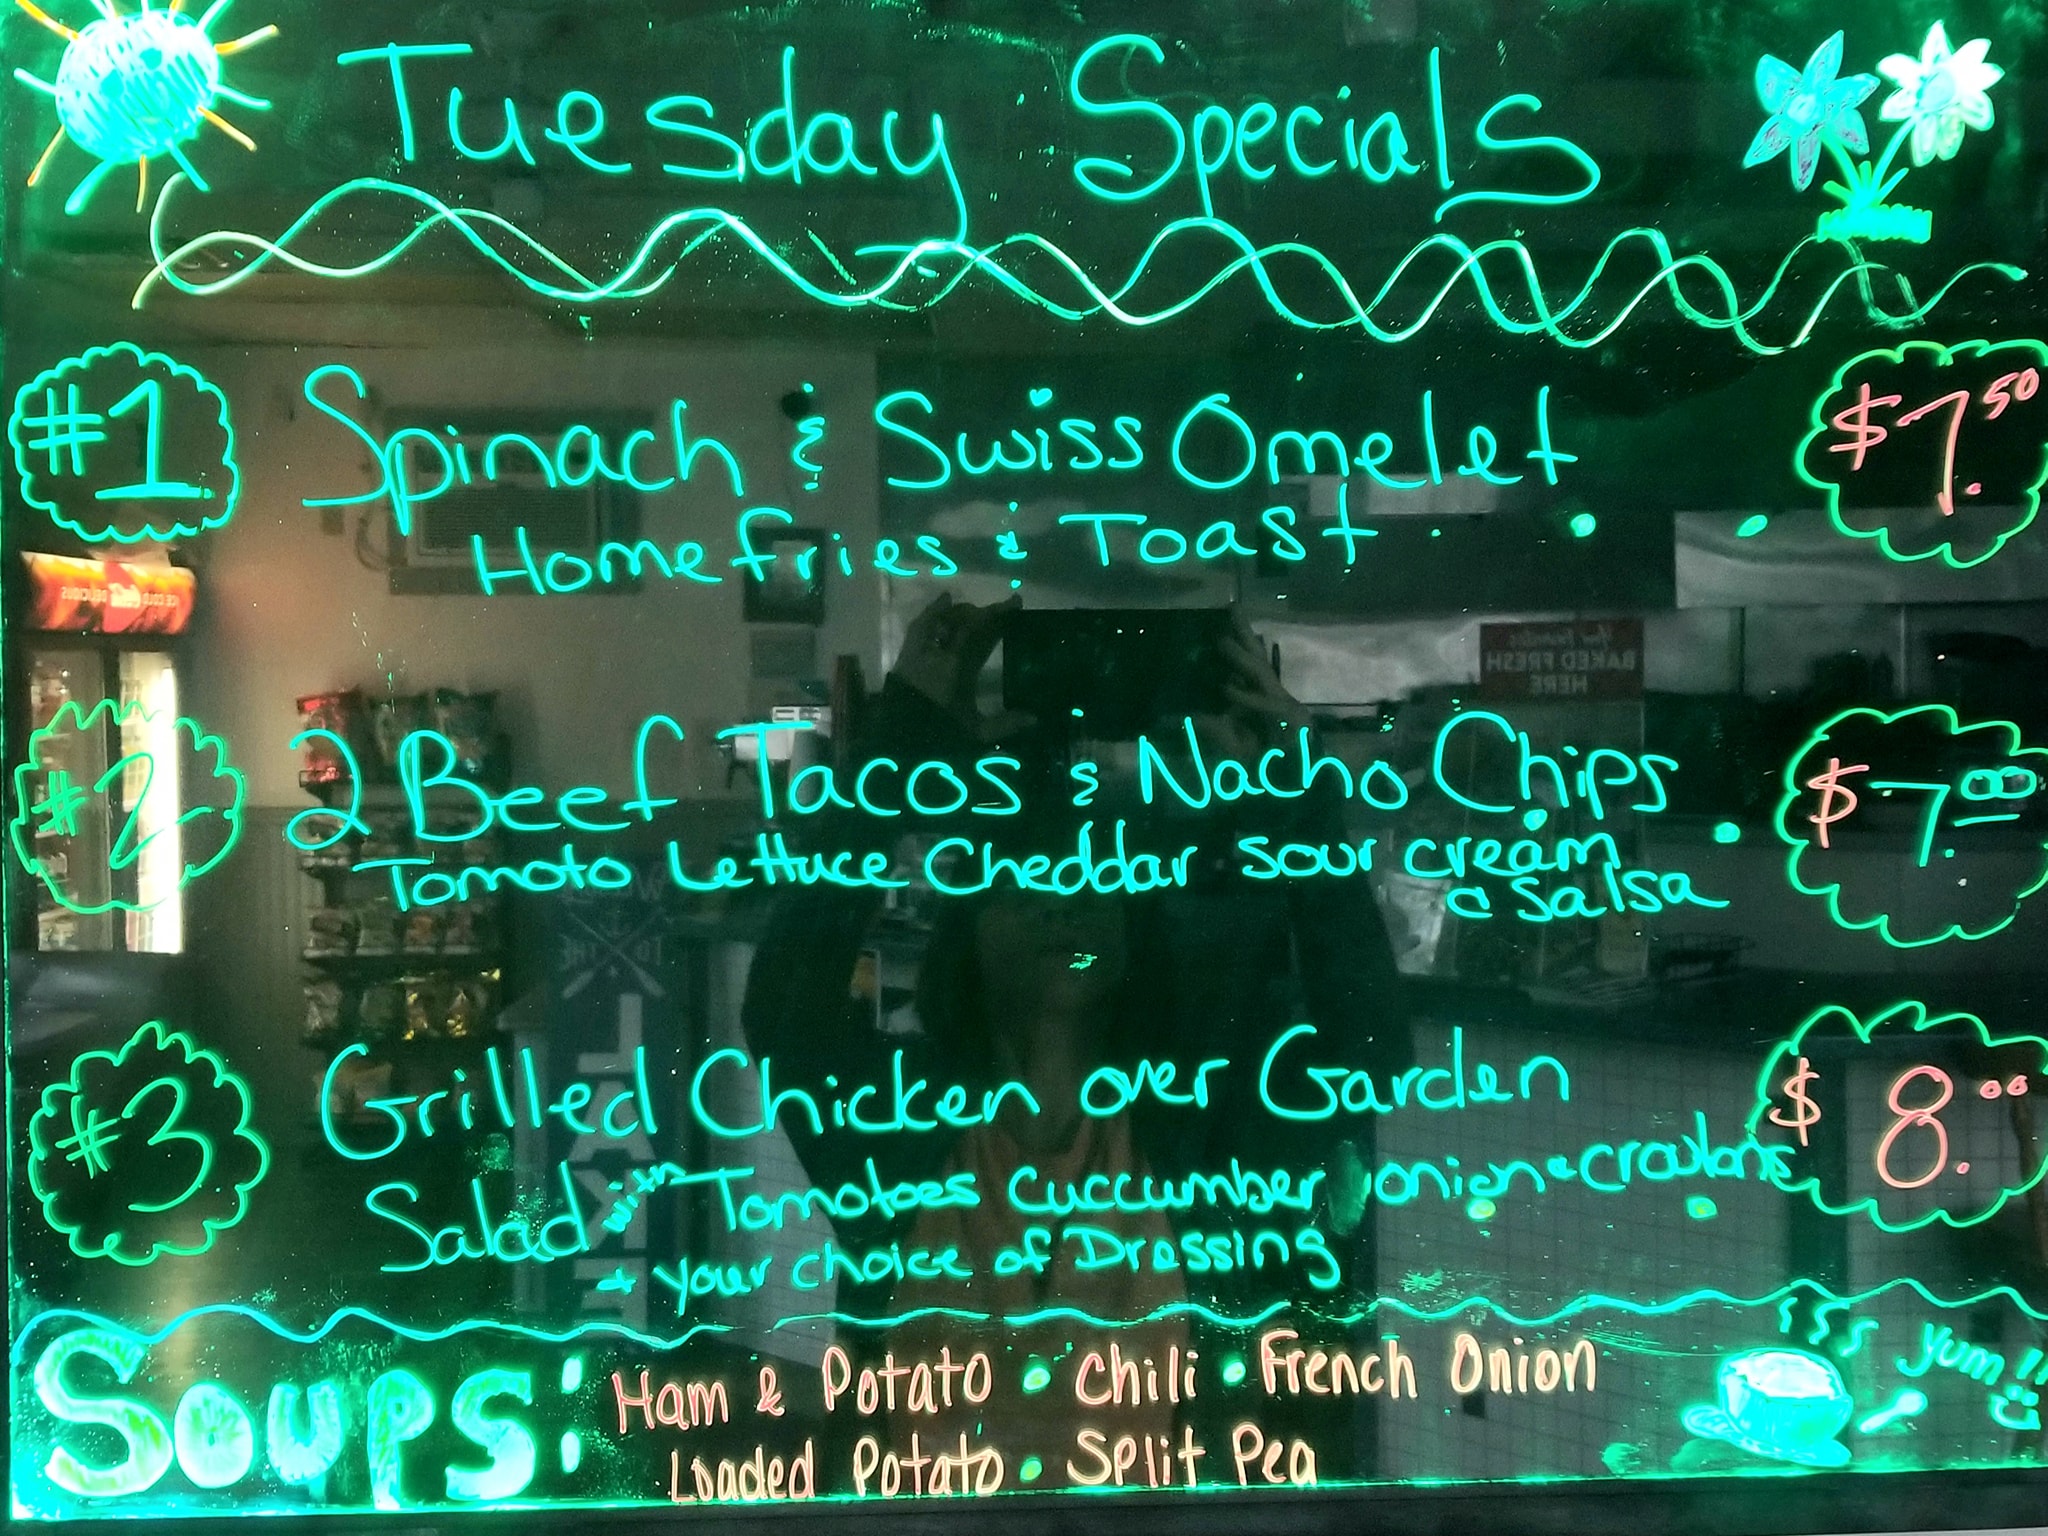 Tuesday Specials
#1 Spinach & Swiss Omelet $7.50
Homefries & Toast
#2 2 Beef Tacos & Nacho Chips $7.00
Tomoto Lettuce Cheddar sour cream
& salsa
#3 Grilled Chicken over Garden $8.00
Salad with Tomotoes cuccumber onion & croutons
+ your choice of Dressing
Soups: Ham & Potato • Chili • French Onion
Loaded Potato • Split Pea
Yum!!
ICE COLD Coca-Cola DELICIOUS
BAKED FRESH
HERE